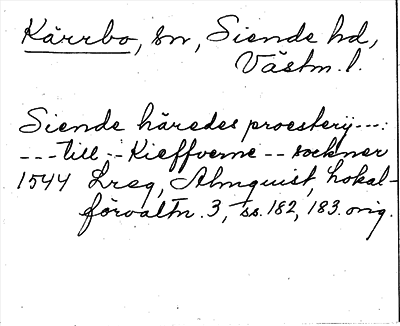 Kärrbo, sn, Siende hd,
Västm. l.
Siende häredes proesterij ---:
--- till -- Kieffverne -- sockner
1544 Lreg, Almquist, Lokal-
förvaltn. 3, ss. 182, 183. orig.